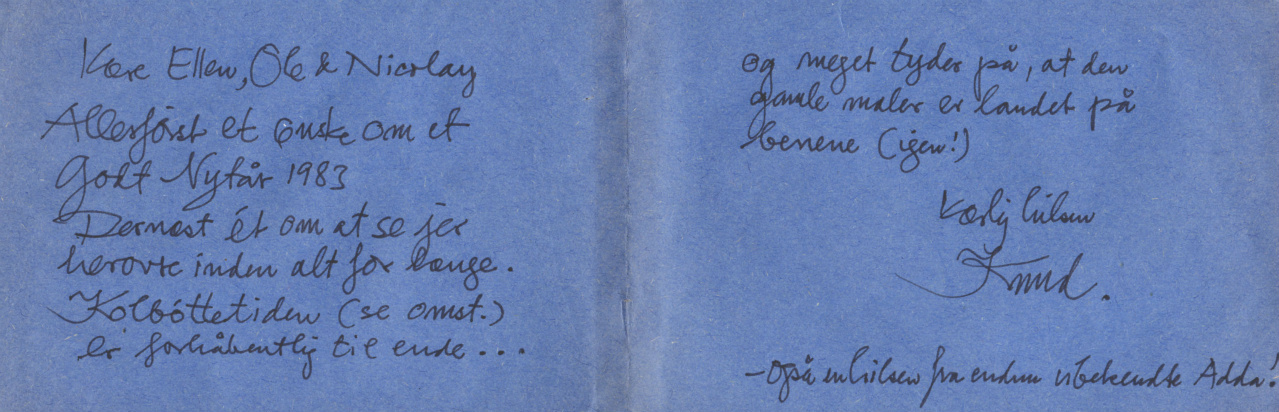 Kære Ellen, Ole & Nicolay
Allerførst et ønske om et
Godt Nytår 1983
Dernæst ét om at se jer
herovre inden alt for længe.
Kolbøttetiden (se omst.)
er forhåbentlig til ende...
Og meget tyder på, at den
gamle maler er landet på
benene (igen!)
Kærlig hilsen
Knud.
- også en hilsen fra endnu ubekendte Adda!